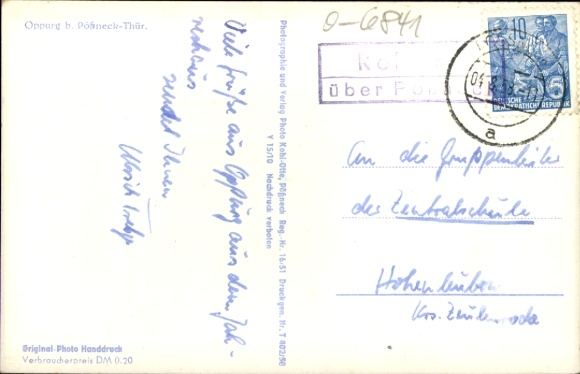 Oppurg b. Pößneck-Thür.
Viele Grüße aus Oppurg aus dem
sendet Ihnen
Ulrich
Original-Photo Handdruck
Verbraucherpreis DM 0.20
Photographie und Verlag Photo Kohl-Otte, Pößneck Reg.-Nr. 16/51 Druckgen. Nr. T 802/50
Y 15/10 Nachdruck verboten
0-6841
über
10
5
DEUTSCHE
DEMOKRATISCHE REPUBLIK
a
An die Gruppenleiter
der Zentralschule
Hohenleuben
Krs. Zeulenroda